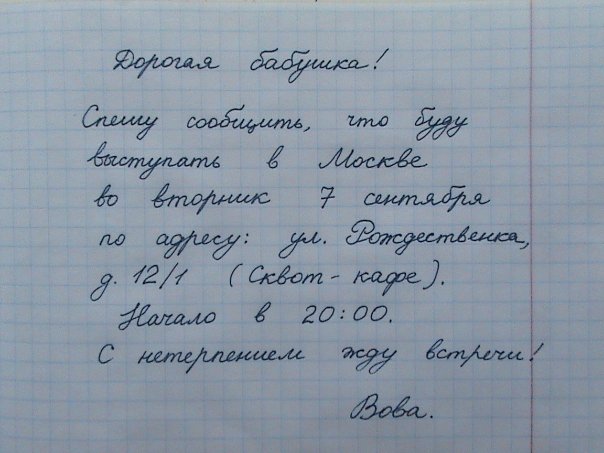 Дорогая бабушка!
Спешу сообщить, что буду
выступать в Москве
во вторник 7 сентября
по адресу: ул. Рождественка,
д. 12/1 (Сквот-кафе).
Начало в 20:00.
С нетерпением жду встречи!
Вова.